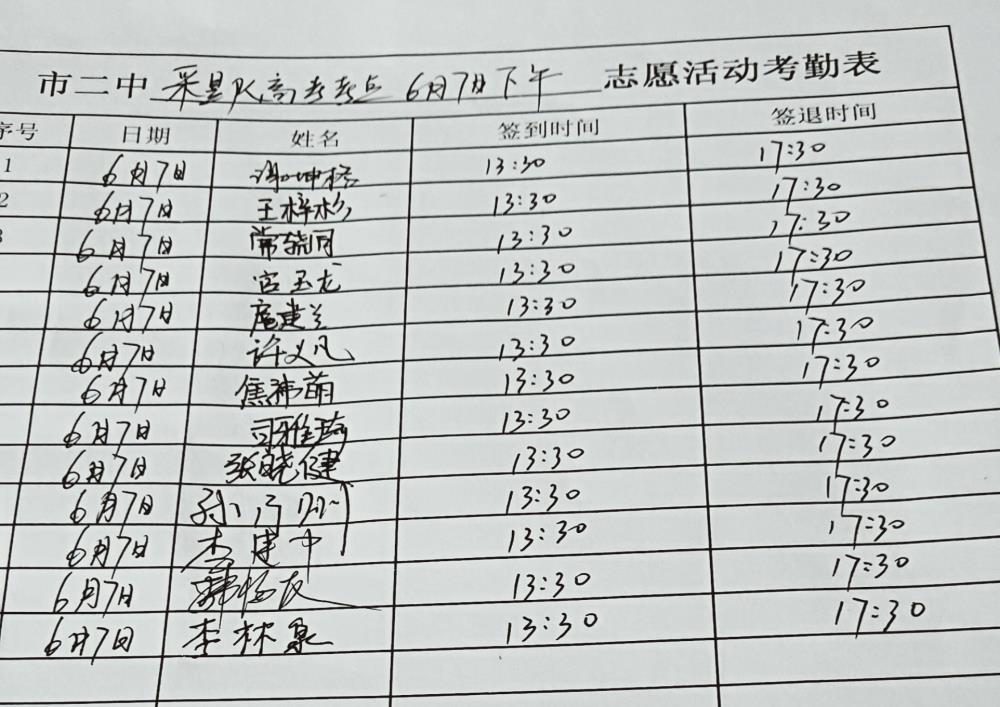 市二中 采星队高考考点 6月7日下午 志愿活动考勤表
序号 日期 姓名 签到时间 签退时间
1 6月7日 13:30 17:30
2 6月7日 王梓杉 13:30 17:30
3 6月7日 常晓月 13:30 17:30
6月7日 宫玉龙 13:30 17:30
6月7日 庞建兰 13:30 17:30
6月7日 许义凡 13:30 17:30
6月7日 焦祎萌 13:30 17:30
6月7日 司雅琦 13:30 17:30
6月7日 张晓健 13:30 17:30
6月7日 13:30 17:30
6月7日 李建中 13:30 17:30
6月7日 13:30 17:30
6月7日 李林泉 13:30 17:30